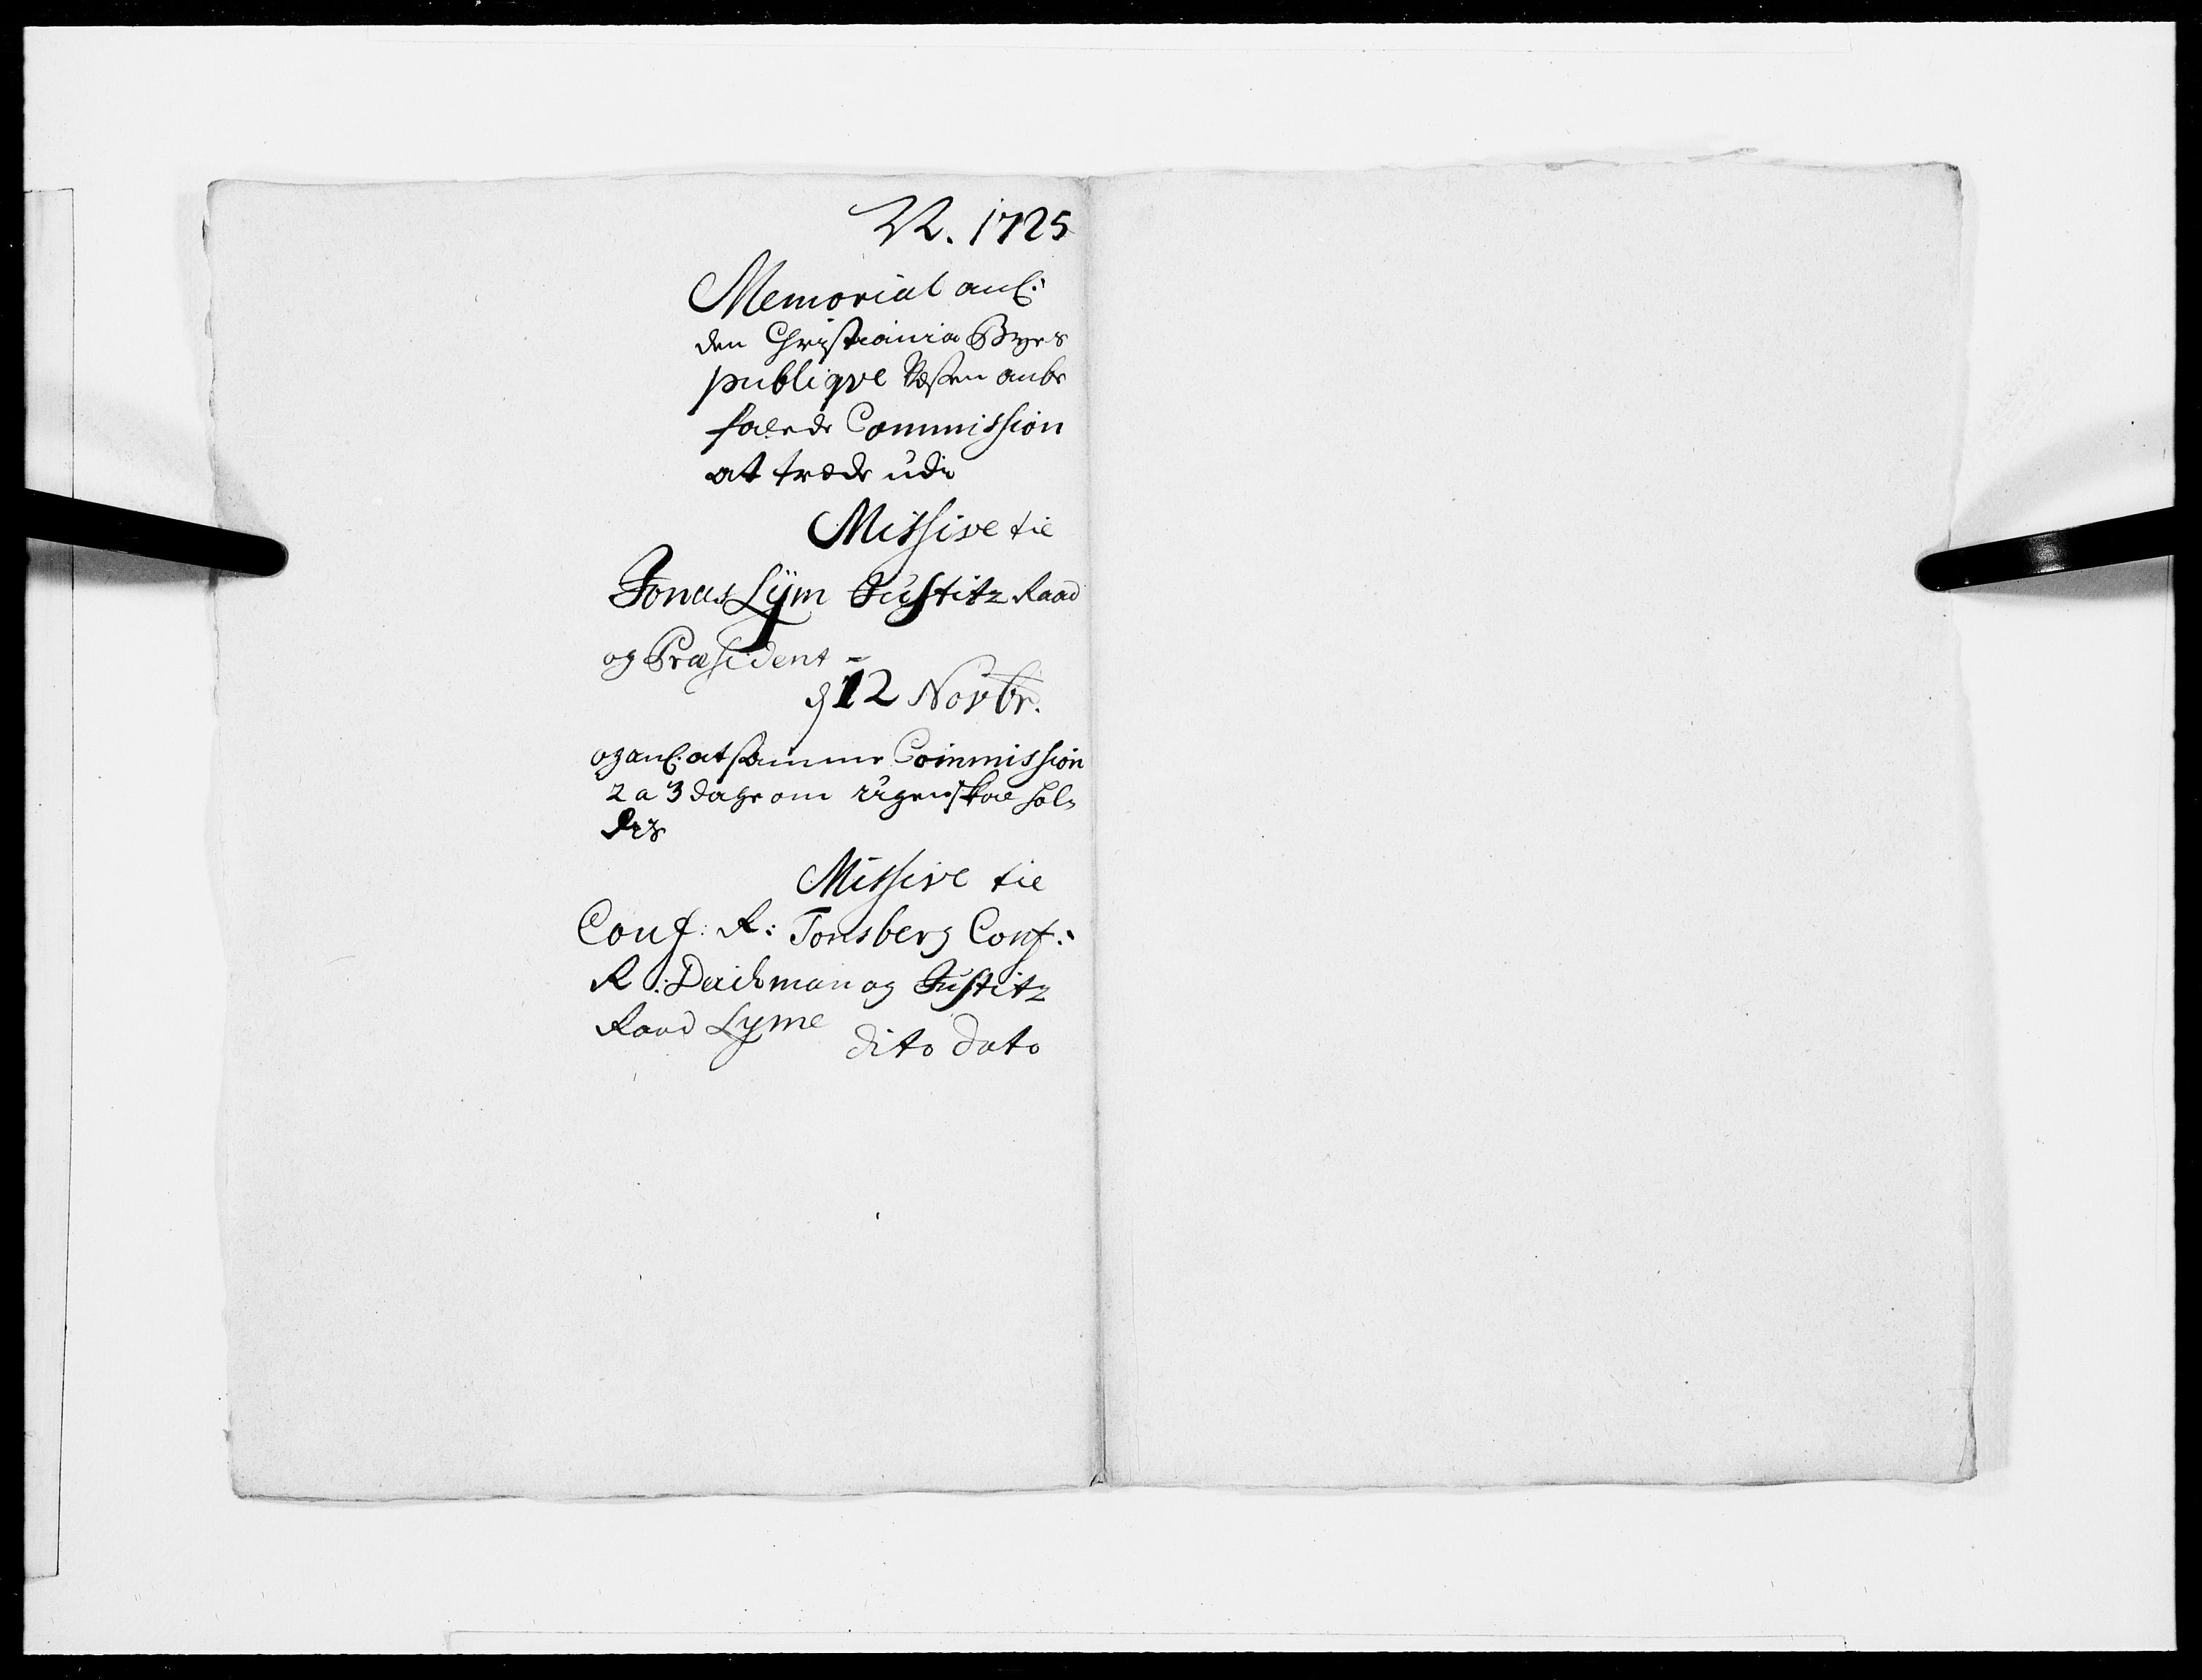 22. 1725
Memorial anl:
den Christiania Byes
publique Væsen anbe
falede Commission
at træde udi
Missive til
Jonas Lÿm Justitz Raad
og Præsident -
d 12 Novbr.
og anl: at samme Commission
2 a 3 dage om ugen skal hol-
des
Missive til
Conf: R: Tonsberg Conf:
R: Deichman og Justitz
Raad Lyme
dito dato